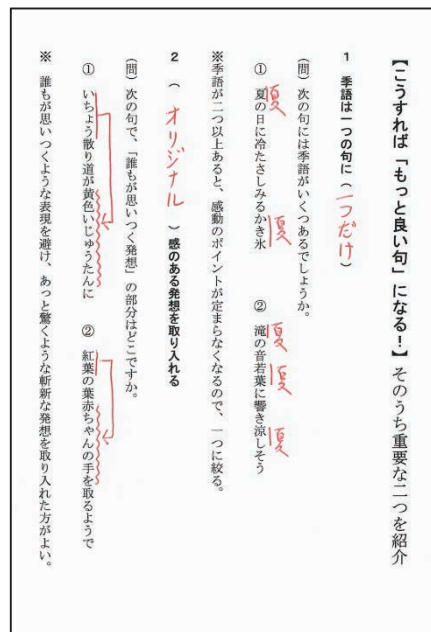 【こうすれば「もっと良い句」になる！】そのうち重要な二つを紹介
1 季語は一つの句に（一つだけ）
（問）次の句には季語がいくつあるでしょうか。
① 夏の日に冷たさしみるかき氷 ② 滝の音若葉に響き涼しそう
夏 夏 夏 夏 夏
※季語が二つ以上あると、感動のポイントが定まらなくなるので、一つに絞る。
2 （オリジナル）感のある発想を取り入れる
（問）次の句で、「誰もが思いつく発想」の部分はどこですか。
① いちょう散り道が黄色いじゅうたんに ② 紅葉の葉赤ちゃんの手を取るようで
※ 誰もが思いつくような表現を避け、あっと驚くような斬新な発想を取り入れた方がよい。